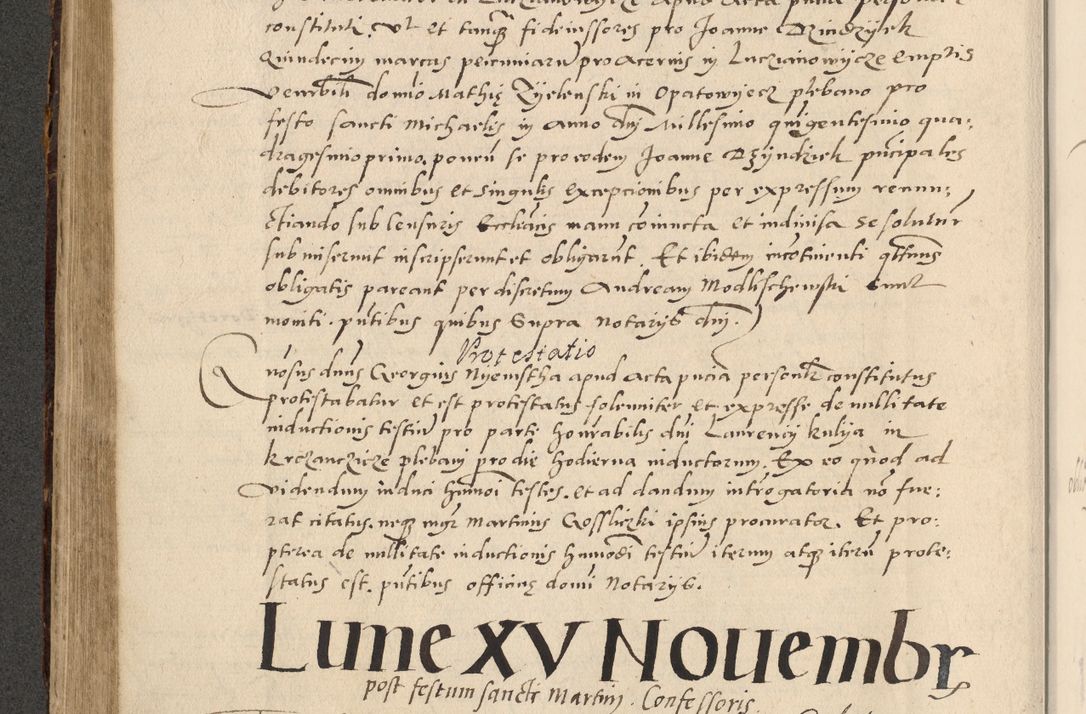 constituti. Vt et tanq̃ fideiussores pro Joanne Dzindzyek
Quindecim marcas pecuniarũ pro acernis in Luczianowycze emptis
Venerbili domĩo Mathię Zyelenski in Opatowyecz plebano pro
festo sancti Michaelis in anno dnj Millesimo quigentesimo qua:
dragesimoprimo. ponerũ se pro eodem Joanne Dzyndziek pncipales
debitores omnibus et singulis excepcionibus per expressum renun:
ctiando sub censuris Ecclȩcis manu coniuncta et indiuisa se soluturos
submiserunt inscripserunt et obligarũt. Et ibidem incõtinenti
obligatis pareant per discretum Andream Modlischewski sunt
moniti. pntibus quibus supra Notarijs dnj.
Protestatio
dnus Georgius Nyemstha apud acta pncia personlr constitutus
protestabatur et est protestatus solenniter et expresse de nullitate
inductionis testiũ pro parte honrabilis dnj Laurencij Kulya in
Krczanczicze plebani pro die hodierna inductorum. Ex eo quod ad
videndum induci hmnoi testes. et ad dandum introgatoria nõ fue:
rat citatus. neqз mgr Martinus Gossliczki ipsius procurator. Et pro:
pterea de nullitate inductionis humodi testiũ iterum atqз iterũ prote:
status est. pntibus officiis domi Notarijs.
Lune XV Nouembr
post festum sancti Martinj. Confessoris.